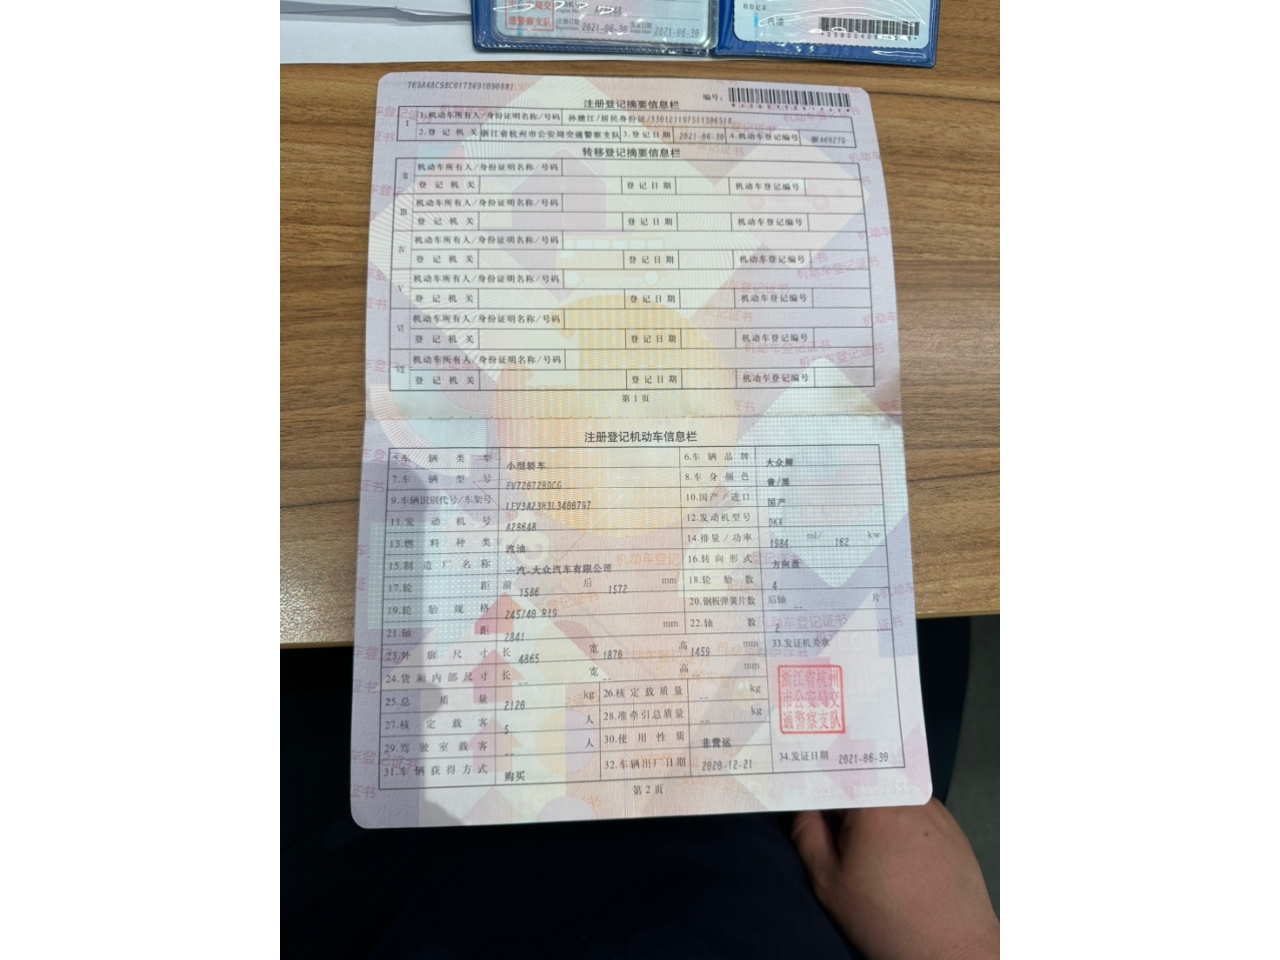 2021-06-30
2021-06-30
汽油
769A48C98C0173691090881
注册登记摘要信息栏
编号:
I
1.机动车所有人/身份证明名称/号码 孙建江/居民身份证/330121197511306518
2.登记机关 浙江省杭州市公安局交通警察支队 3.登记日期 2021-06-30 4.机动车登记编号
转移登记摘要信息栏
II 机动车所有人/身份证明名称/号码
登记机关 登记日期 机动车登记编号
III 机动车所有人/身份证明名称/号码
登记机关 登记日期 机动车登记编号
IV 机动车所有人/身份证明名称/号码
登记机关 登记日期 机动车登记编号
V 机动车所有人/身份证明名称/号码
登记机关 登记日期 机动车登记编号
VI 机动车所有人/身份证明名称/号码
登记机关 登记日期 机动车登记编号
VII 机动车所有人/身份证明名称/号码
登记机关 登记日期 机动车登记编号
第1页
注册登记机动车信息栏
5.车辆类型 小型轿车 6.车辆品牌 大众牌
7.车辆型号 FV7207BBDCG 8.车身颜色 黄/黑
9.车辆识别代号/车架号 LFV3A23H3L3400797 10.国产/进口 国产
11.发动机号 A28648 12.发动机型号 DKX
13.燃料种类 汽油 14.排量/功率 1984 ml/ 162 kw
15.制造厂名称 一汽-大众汽车有限公司 16.转向形式 方向盘
17.轮距 前 1586 后 1572 mm 18.轮胎数 4
19.轮胎规格 245/40 R19 20.钢板弹簧片数 后轴 -- 片
21.轴距 2841 mm 22.轴数 2
23.外廓尺寸 长 4865 宽 1870 高 1459 mm 33.发证机关章
24.货厢内部尺寸 长 -- 宽 -- 高 -- mm
25.总质量 2120 kg 26.核定载质量 -- kg
浙江省杭州
市公安局交
通警察支队
27.核定载客 5 人 28.准牵引总质量 -- kg
29.驾驶室载客 -- 人 30.使用性质 非营运
31.车辆获得方式 购买 32.车辆出厂日期 2020-12-21 34.发证日期 2021-06-30
第2页